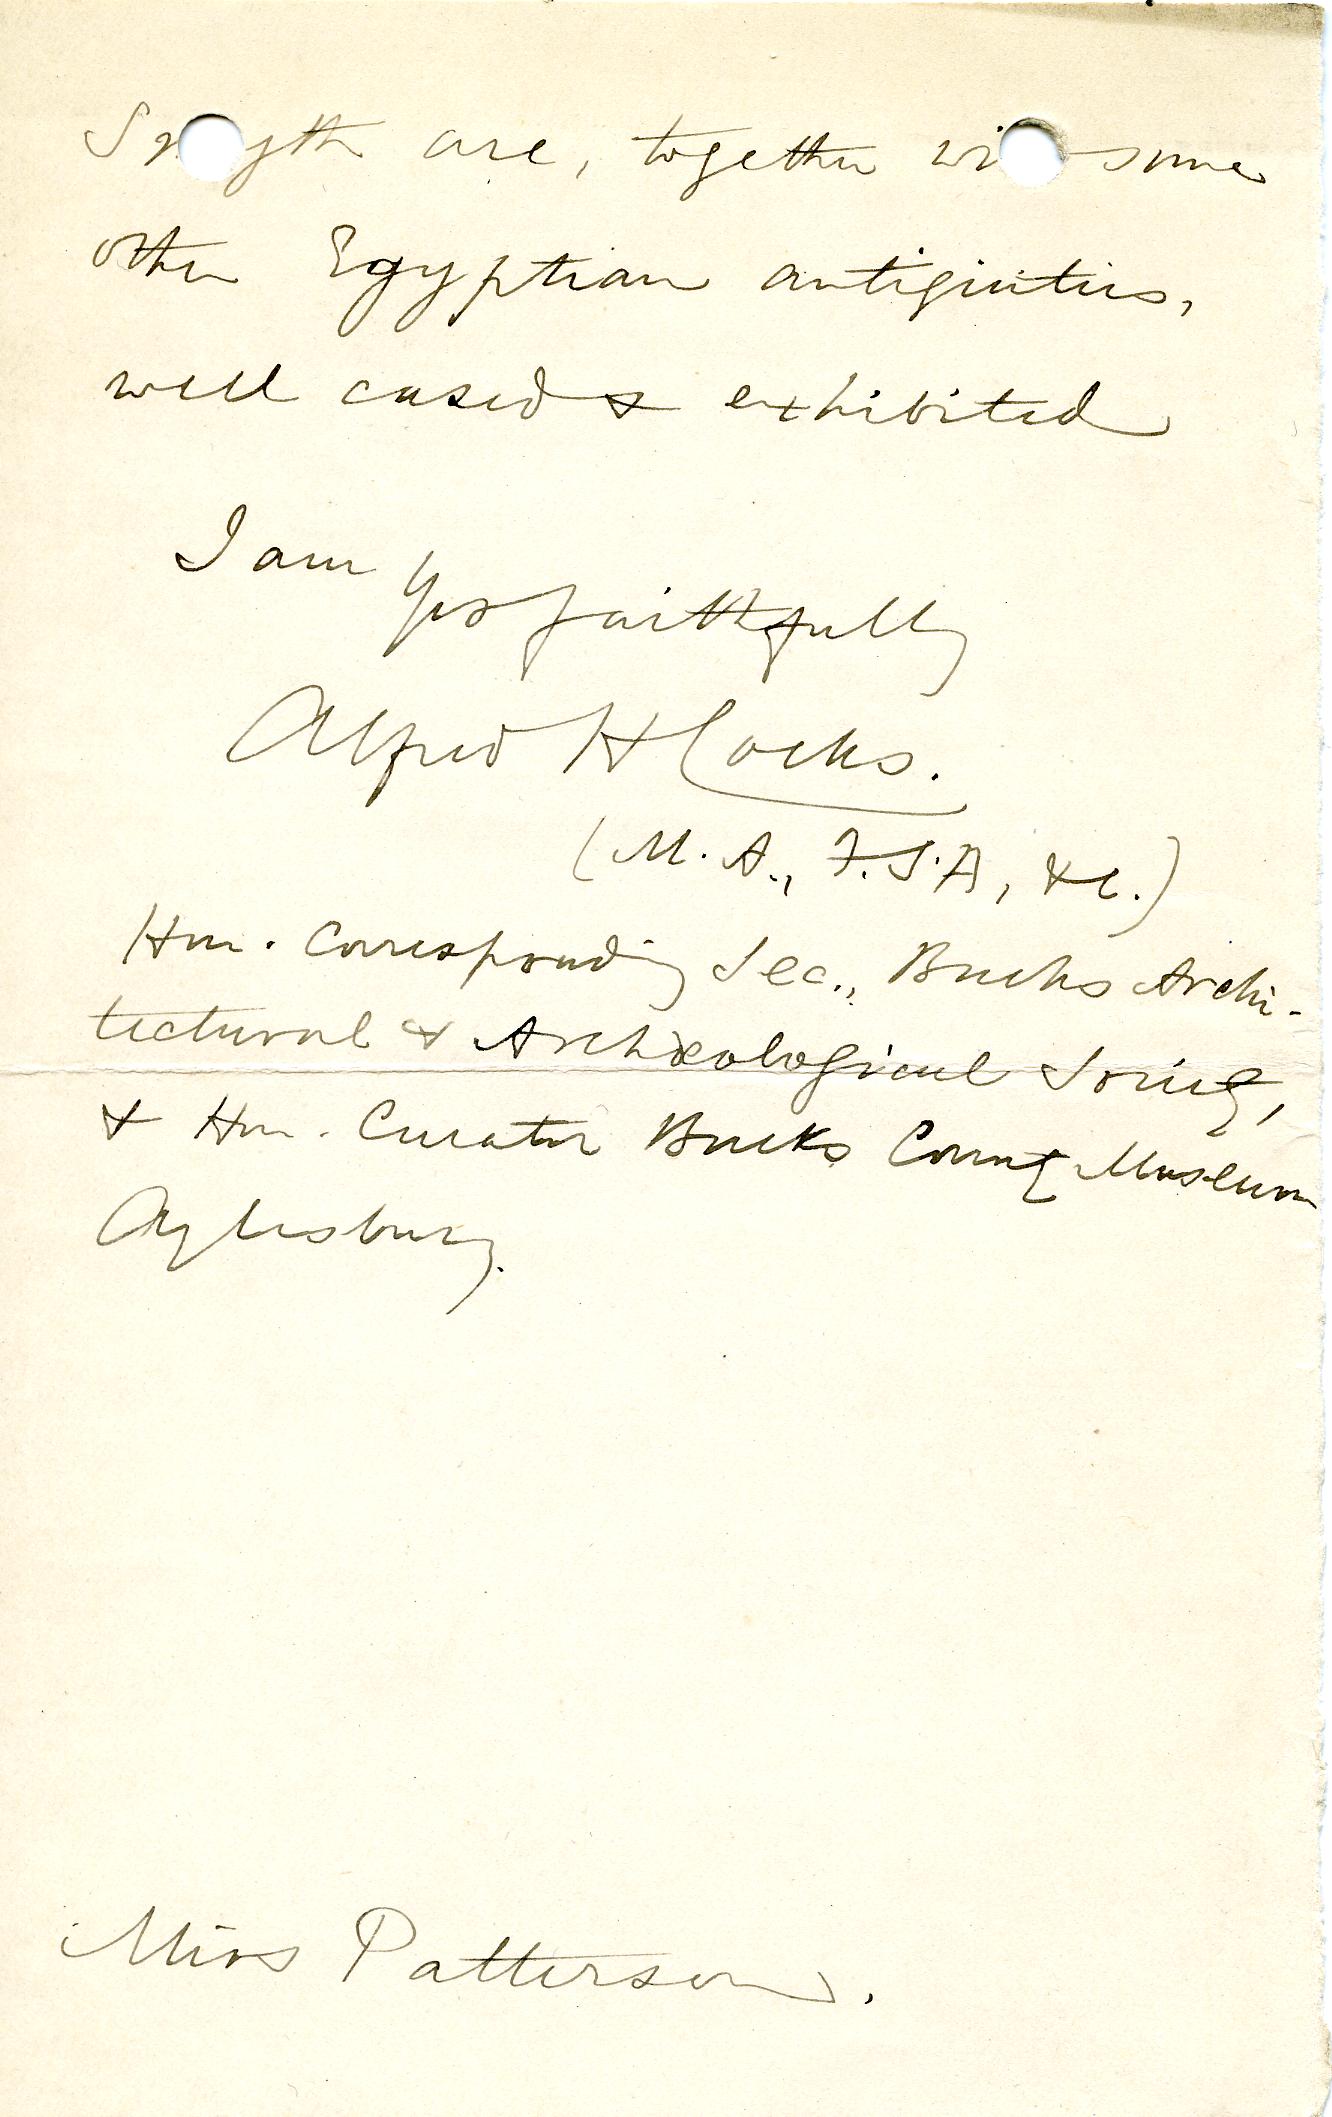 Smyth are, together with some
other Egyptian antiquities,
well cased & exhibited
I am
Yrs faithfully
Alfred H Cocks.
(M.A., F.S.A, &c.)
Hon. Corresponding Sec., Bucks Archi-
tectural & Archæological Society,
& Hon. Curator Bucks County Museum
Aylesbury.
Miss Patterson.